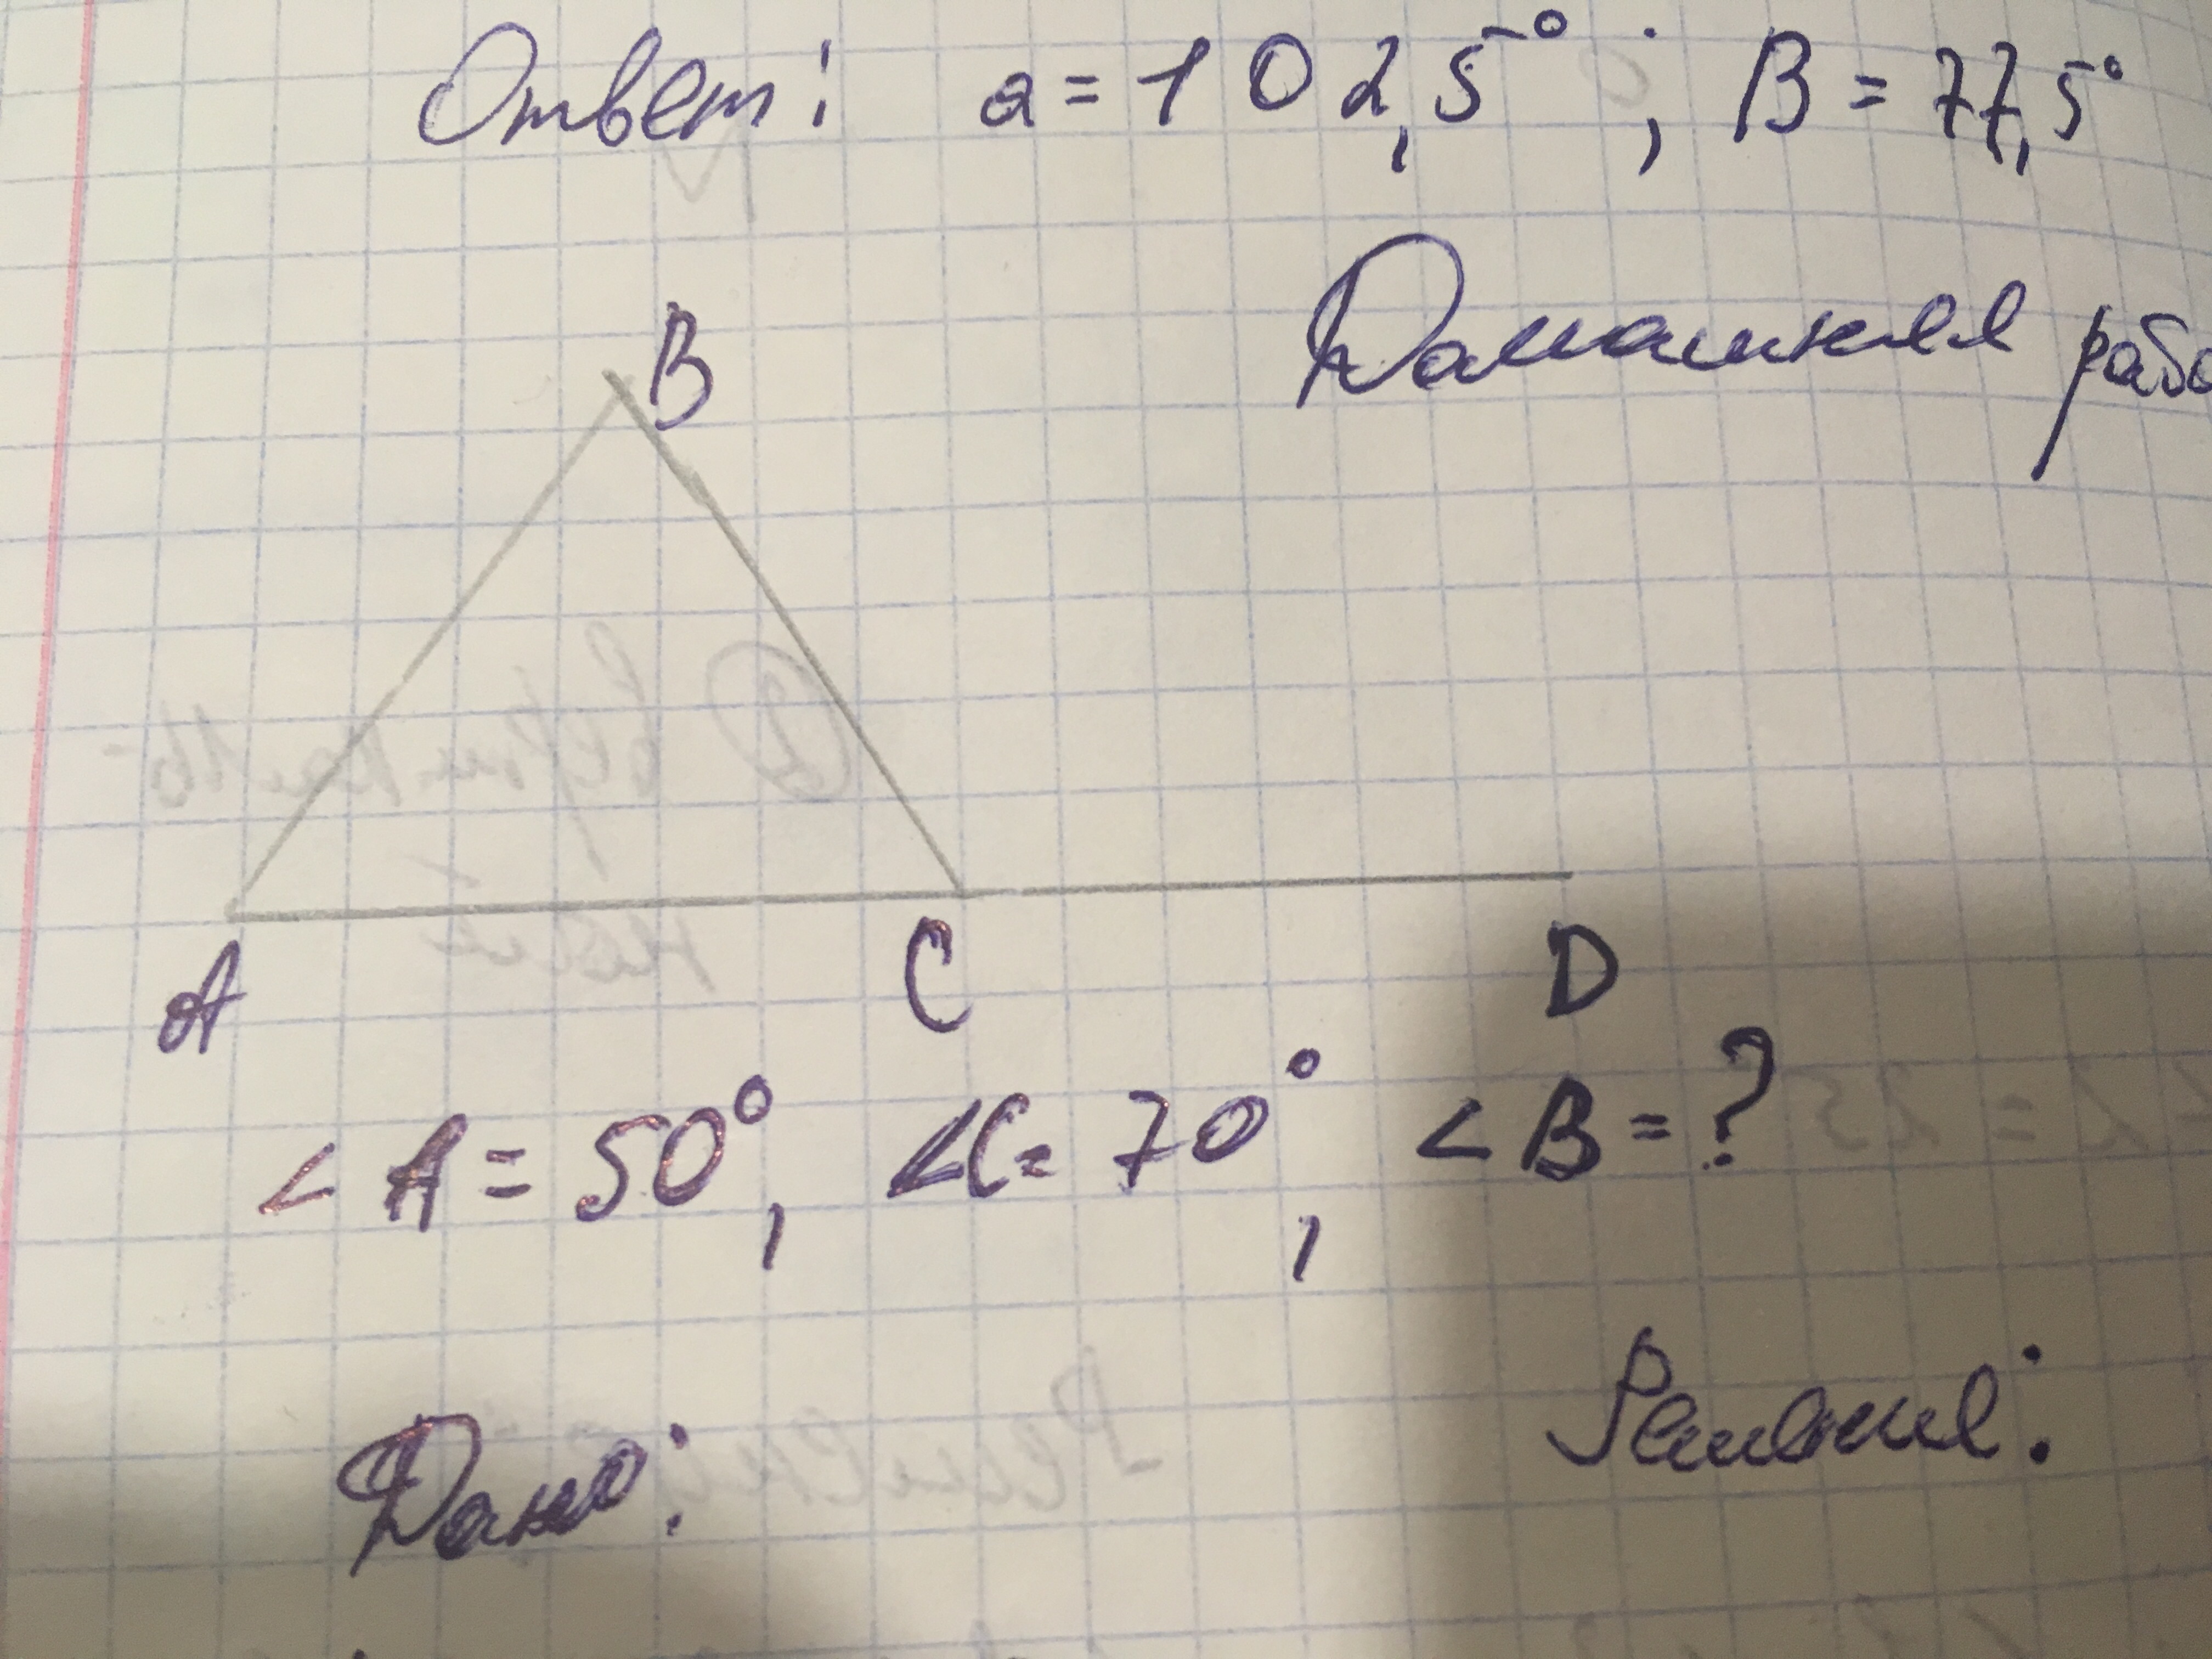 Ответ: a = 102,5°; B = 77,5°
Домашняя рабо
B
A C D
∠A = 50°, ∠C = 70°, ∠B = ?
Дано: Решение: